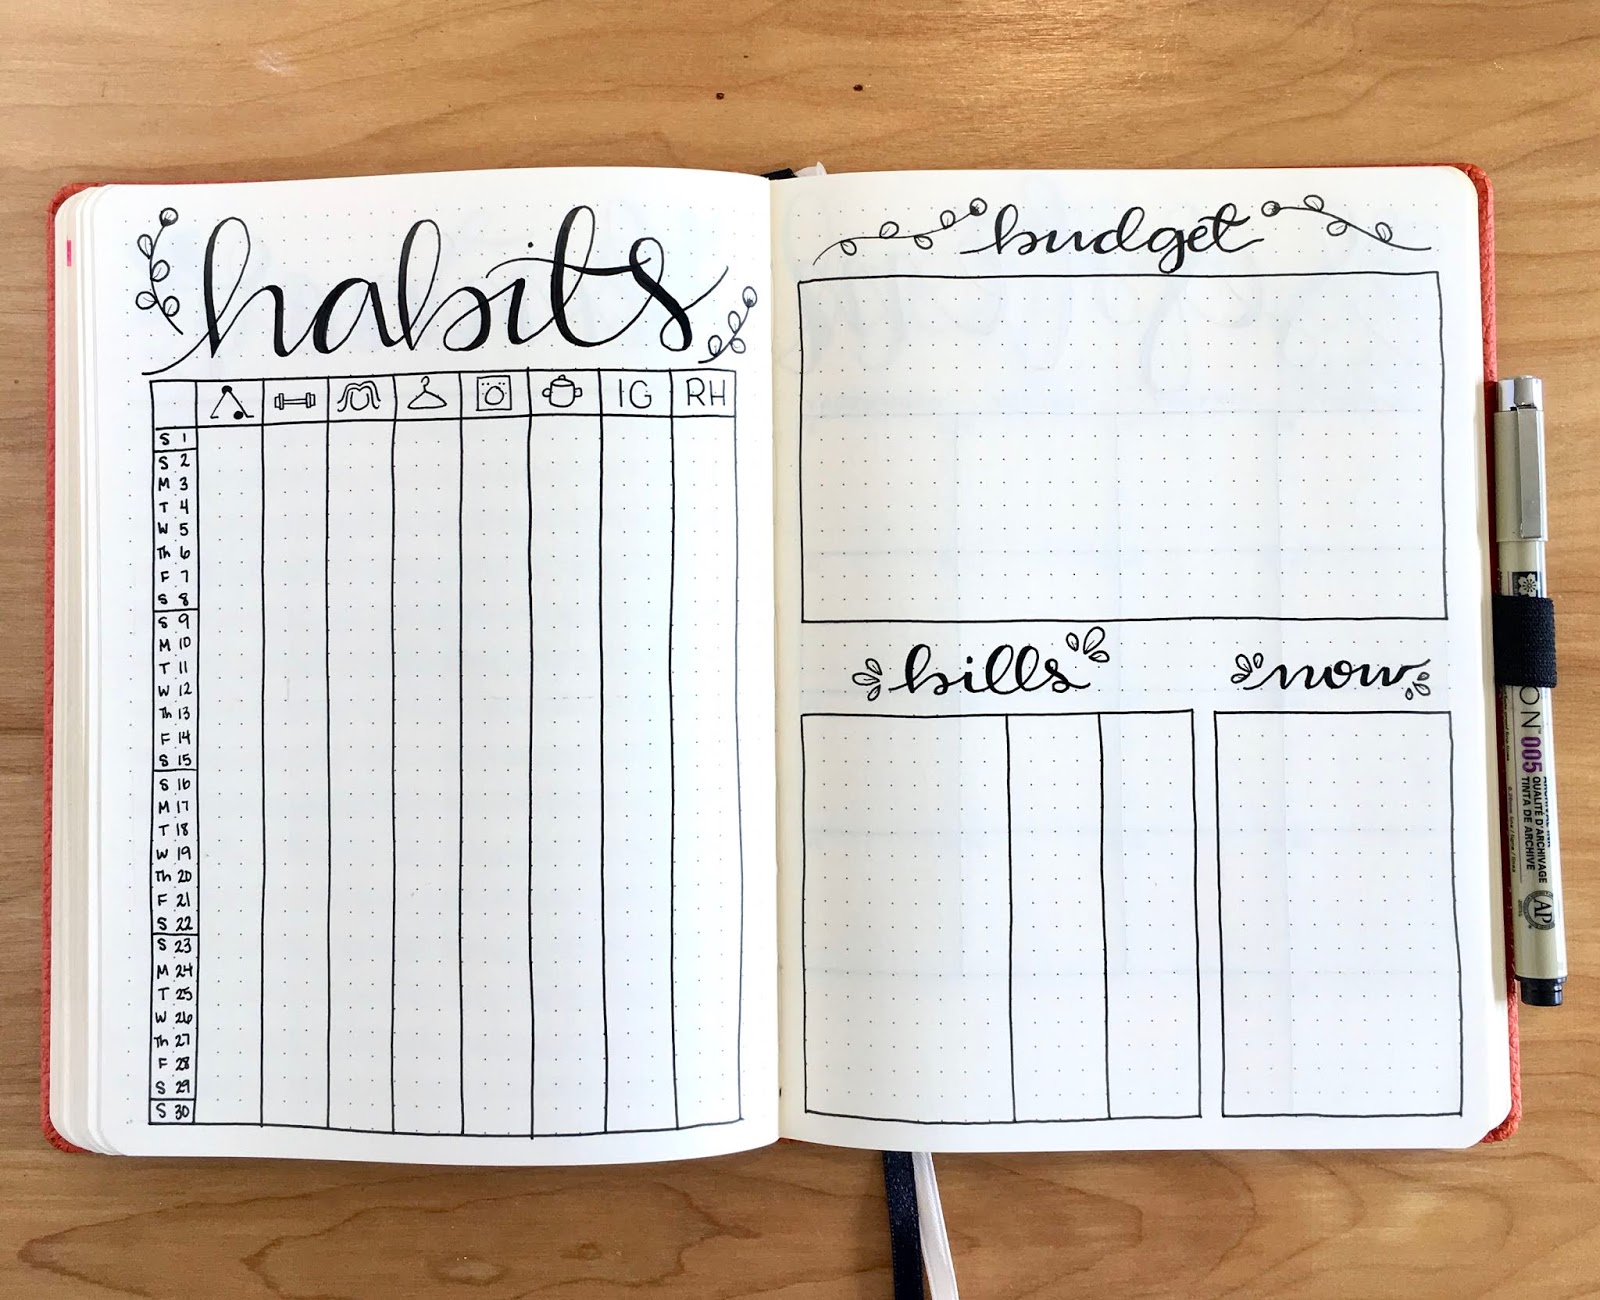 habits
IG RH
S 1
S 2
M 3
T 4
W 5
Th 6
F 7
S 8
S 9
M 10
T 11
W 12
Th 13
F 14
S 15
S 16
M 17
T 18
W 19
Th 20
F 21
S 22
S 23
M 24
T 25
W 26
Th 27
F 28
S 29
S 30
budget
bills
now
ON 005
QUALITÉ D'ARCHIVAGE
TINTA DE ARCHIVE
AP